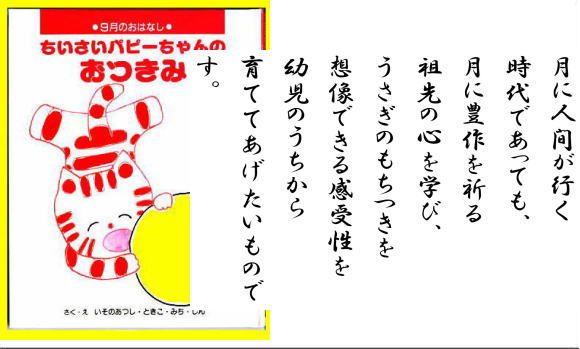 ●9月のおはなし●
ちいさいパピーちゃんの
おつきみ
さく・え いそのあつし・ときこ・みち・しん
月に人間が行く
時代であっても、
月に豊作を祈る
祖先の心を学び、
うさぎのもちつきを
想像できる感受性を
幼児のうちから
育ててあげたいもので
す。